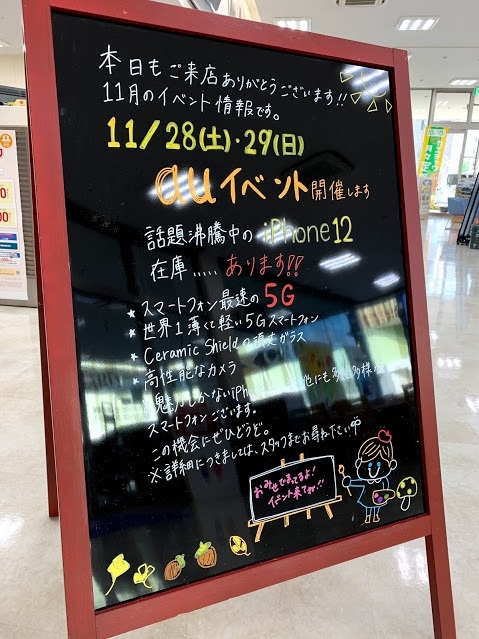 本日もご来店ありがとうございます!!
11月のイベント情報です。
11/28(土)・29(日)
auイベント開催します
話題沸騰中の iPhone12
在庫..... あります!!
★スマートフォン最速の5G
★世界1薄くて軽い5Gスマートフォン
★Ceramic Shieldの頑丈ガラス
★高性能なカメラ
魅力しかないiPh 他にも多種多様な
スマートフォンございます。
この機会にぜひどうぞ。
※詳細につきましては、スタッフまでお尋ね下さい
おみせでまってるよ!
イベント来てね!!